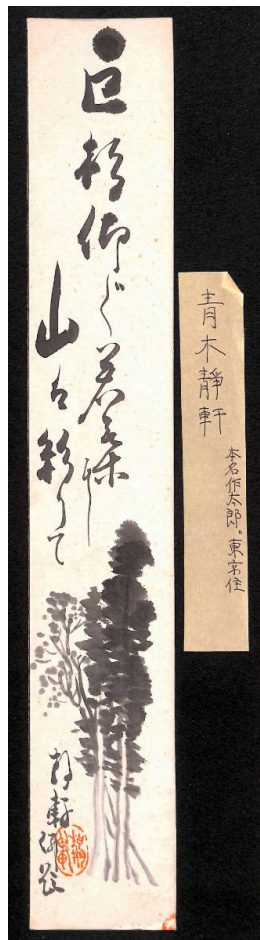 巨杉仰ぐ若葉
山 彩りて
静軒
青木靜軒
本名作太郎。東京住